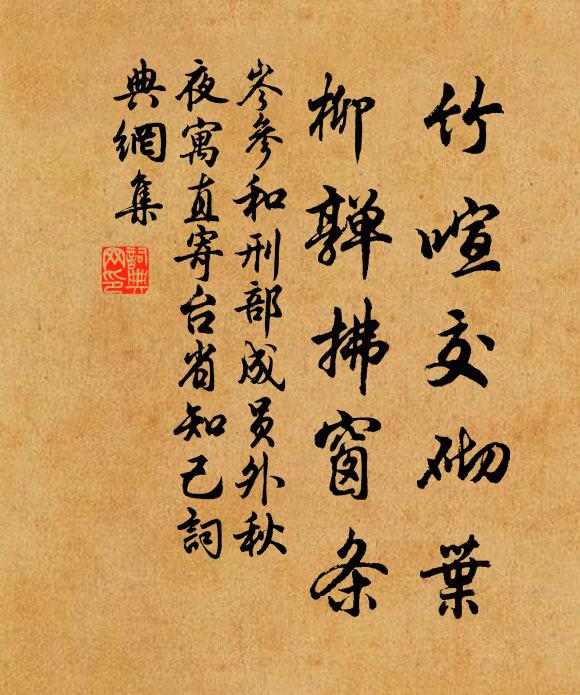 竹喧交砌葉
柳亸拂窗条
岑参和刑部成员外秋
夜寓直寄台省知己詞
典網集
詞典
网印